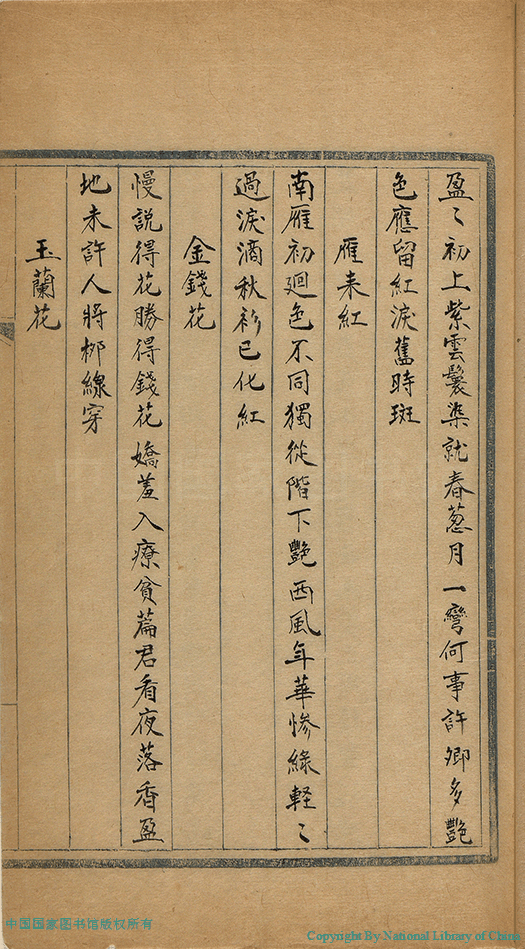 盈〻初上紫雲鬟染就春葱月一彎何事許卿多艷
色應留紅淚舊時斑
雁来紅
南雁初廻色不同獨從階下艷西風年華惨綠軽〻
過淚滴秋衫已化紅
金錢花
慢說得花勝得錢花嬌羞入療貧篇君看夜落香盈
地未許人將柳線穿
玉蘭花
中国国家图书馆版权所有
Copyright By National Library of China